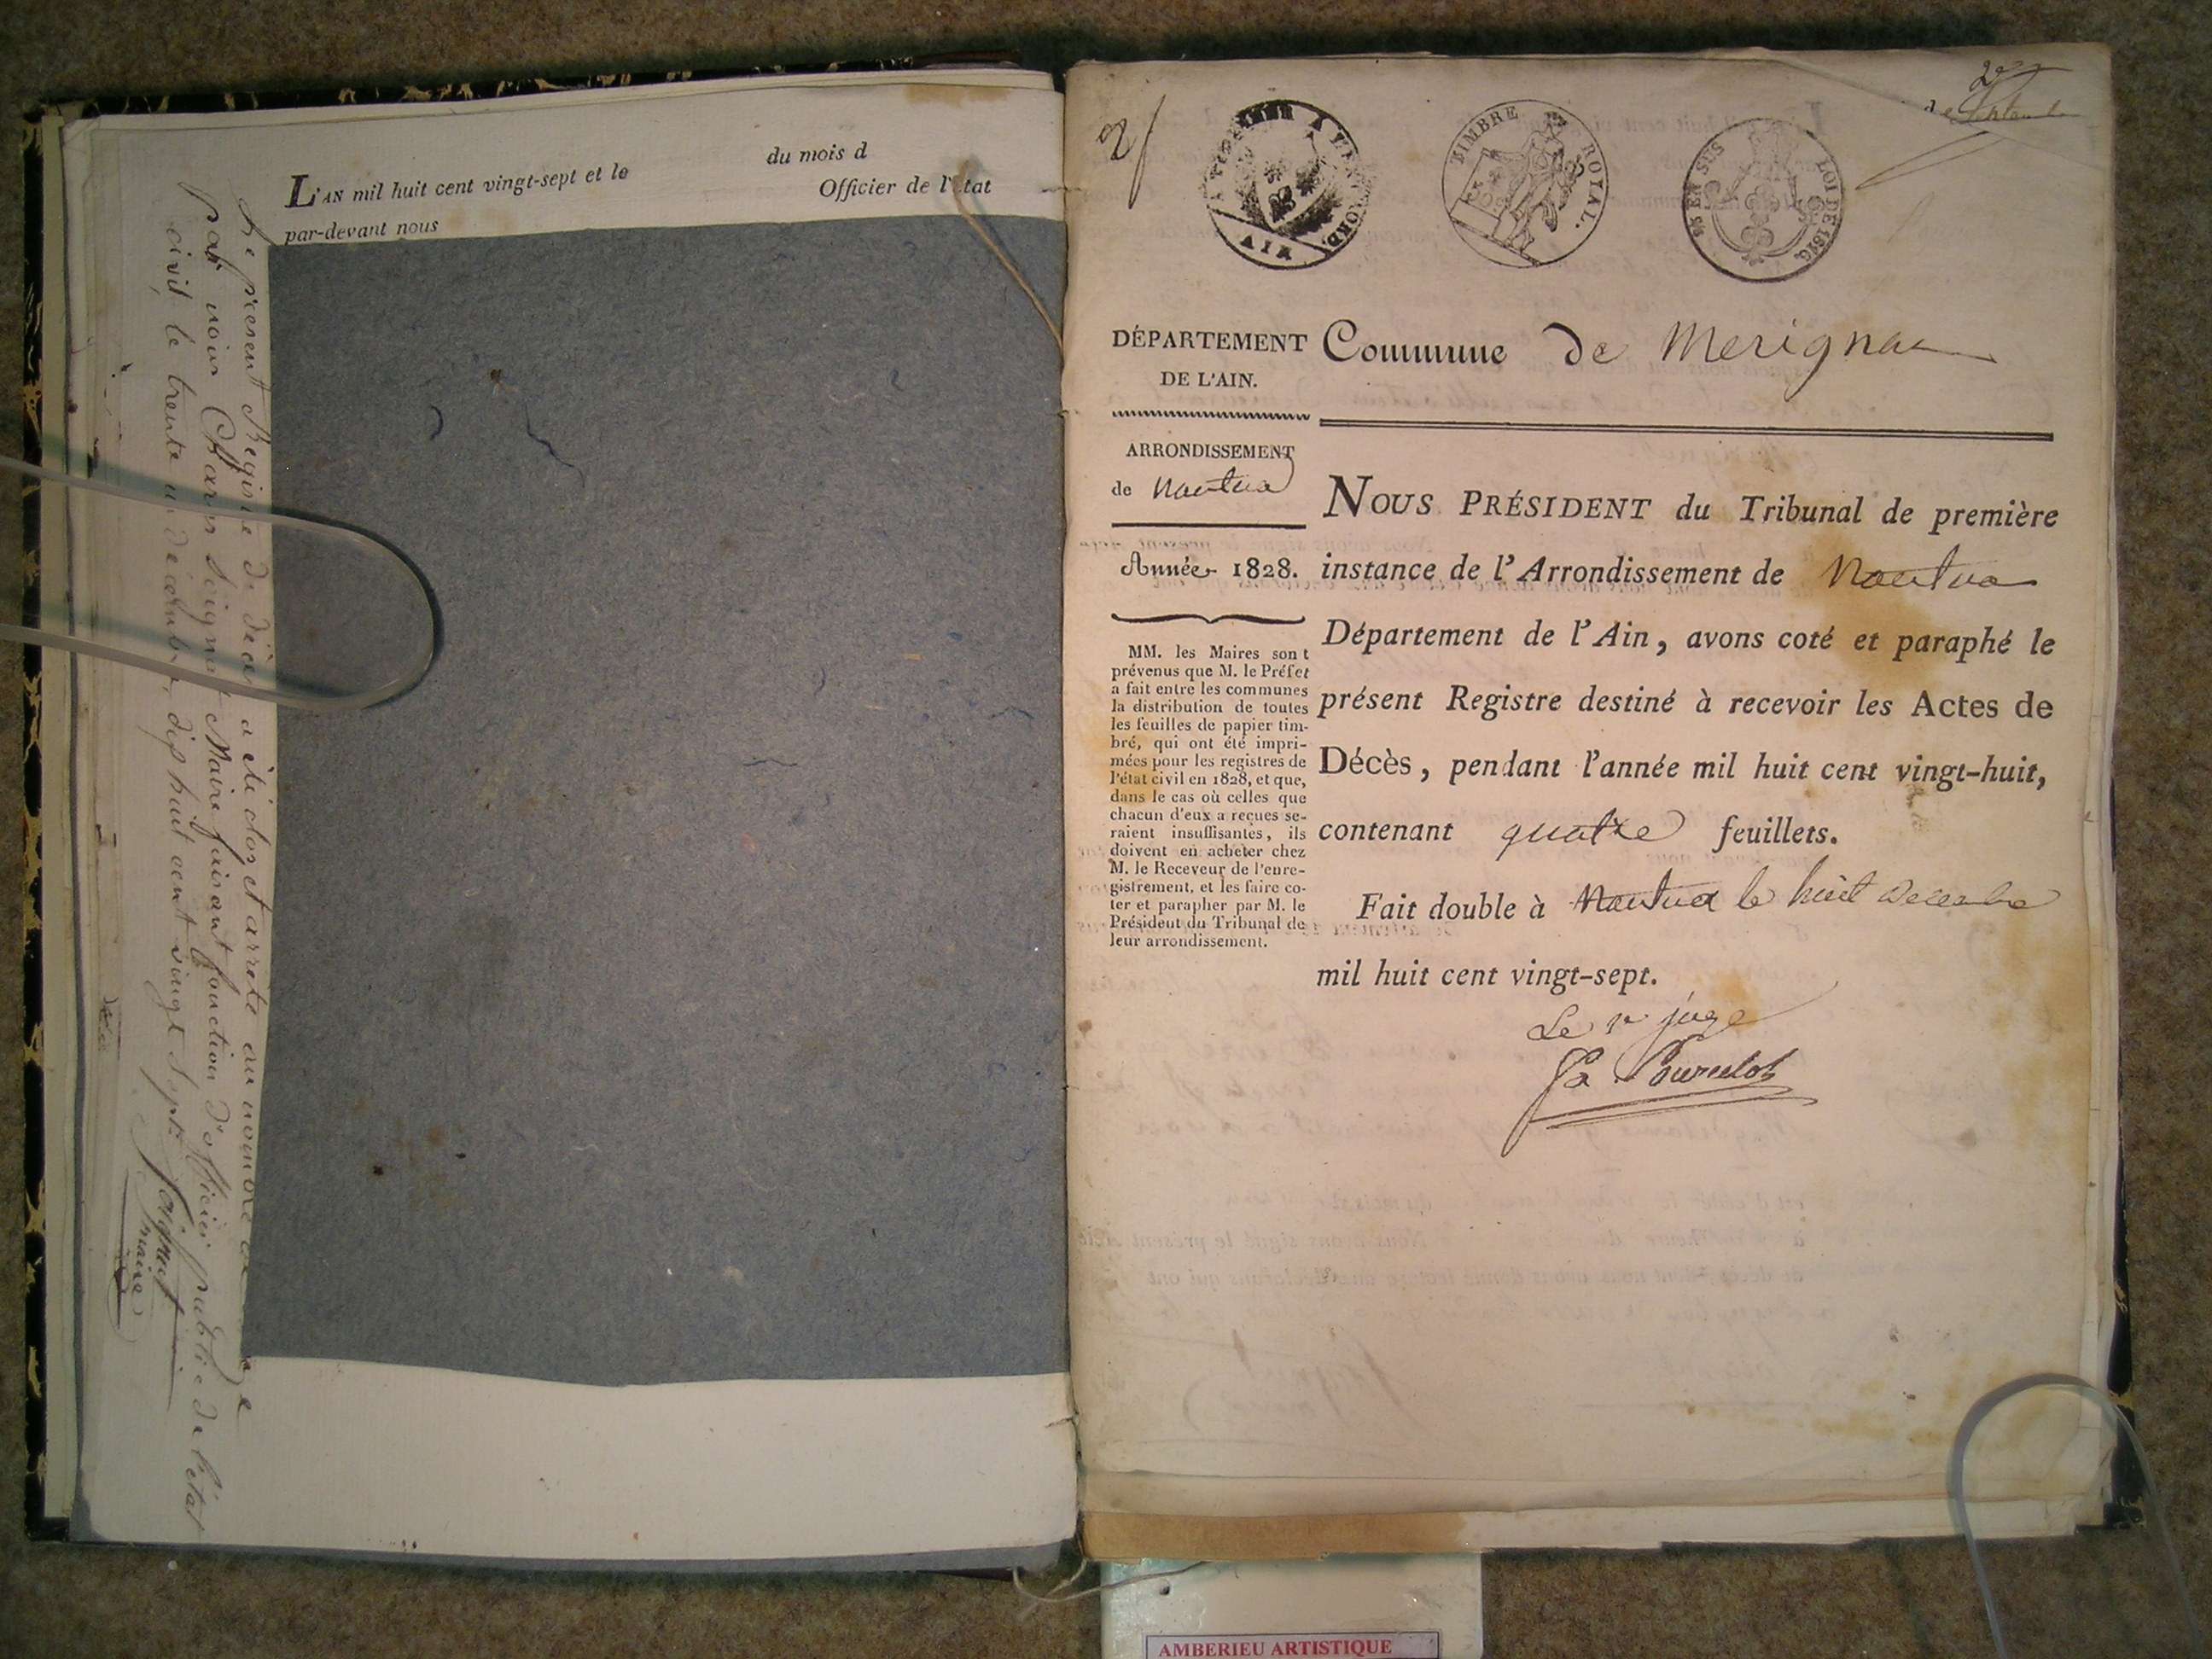 L'AN mil huit cent vingt-sept et le
du mois d
par-devant nous
Officier de l'état
Le présent Registre de décès a été clos et arrêté au nombre de
par nous Seignet Maire faisant fonction d'officier public de l'état
civil le trente un décembre, dix huit cent vingt sept.
maire
2
TIMBRE ROYAL.
LOI DE 1816.
AIN
DÉPARTEMENT
DE L'AIN.
Commune de Merignac
ARRONDISSEMENT
de Nantua
Année 1828.
MM. les Maires sont
prévenus que M. le Préfet
a fait entre les communes
la distribution de toutes
les feuilles de papier tim-
bré, qui ont été impri-
mées pour les registres de
l'état civil en 1828, et que,
dans le cas où celles que
chacun d'eux a reçues se-
raient insuffisantes, ils
doivent en acheter chez
M. le Receveur de l'enre-
gistrement, et les faire co-
ter et parapher par M. le
Président du Tribunal de
leur arrondissement.
NOUS PRÉSIDENT du Tribunal de première
instance de l'Arrondissement de Nantua
Département de l'Ain, avons coté et paraphé le
présent Registre destiné à recevoir les Actes de
Décès, pendant l'année mil huit cent vingt-huit,
contenant quatre feuillets.
Fait double à Nantua le huit decembre
mil huit cent vingt-sept.
Le 1er juge
AMBERIEU ARTISTIQUE